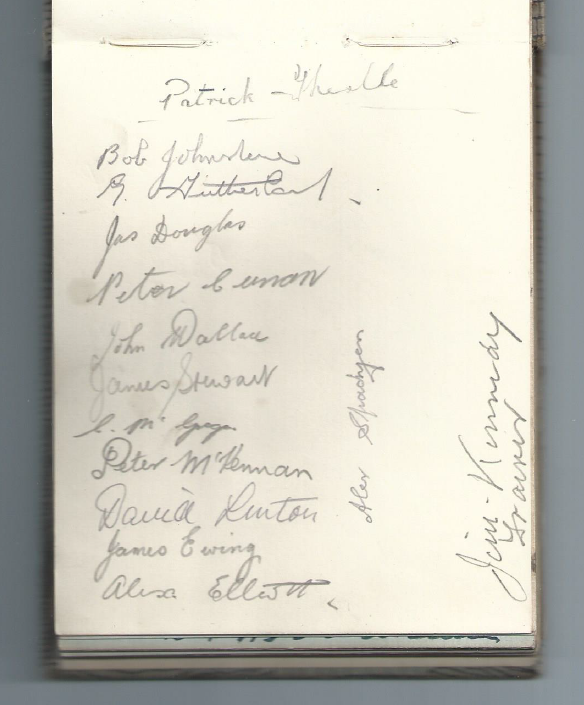 Patrick - Thistle
Bob Johnstone
G. Sutherland
Jas Douglas
Peter Curran
John Wallace
James Stewart
C. McGregor
Peter McKennan
David Linton
James Ewing
Alex Elliott
Alex
Jim Kennedy
Trainer